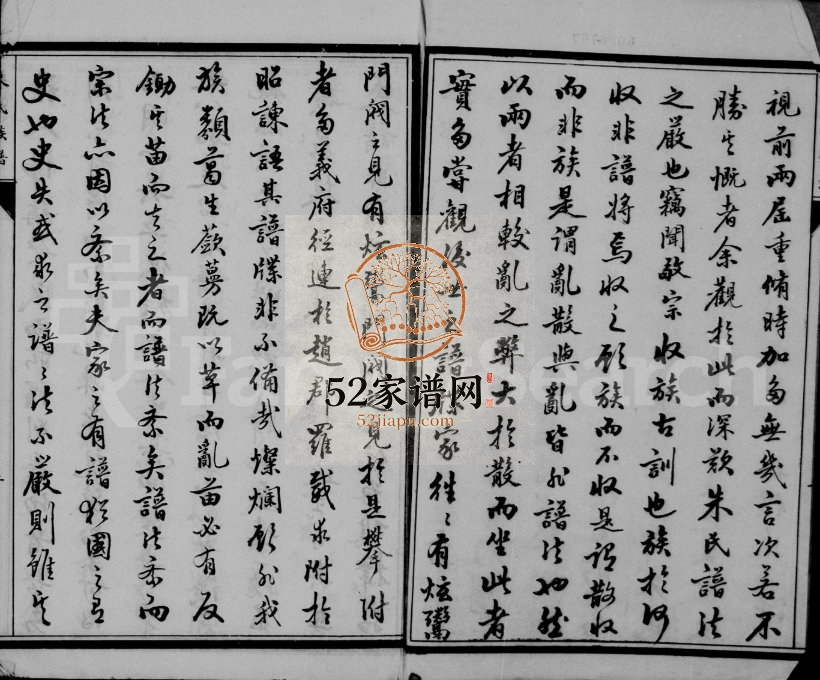 視前兩屆重脩時加多無幾言次若不
勝其慨者余觀於此而深歎朱氏譜法
之嚴也竊聞敬宗收族古訓也族於何
收非譜將焉收之顧族而不收是謂散收
而非族是謂亂散與亂皆非譜法也然
以兩者相較亂之弊大於散而坐此者
實多嘗觀後世之譜 家往々有炫鬻
門閥之見有炫鬻門閥之見於是攀附
者多義府徑連於趙郡羅威求附於
昭諫語其譜牒非不備哉燦爛顧非我
族類葛生蔹蔓既以莘而亂苗必有反
鋤其苗而去之者而譜法紊矣譜法紊而
宗法亦因以紊矣夫家之有譜猶國之有
史也史失或求之譜々法不嚴則雖其
52家谱网
52jiapu.com